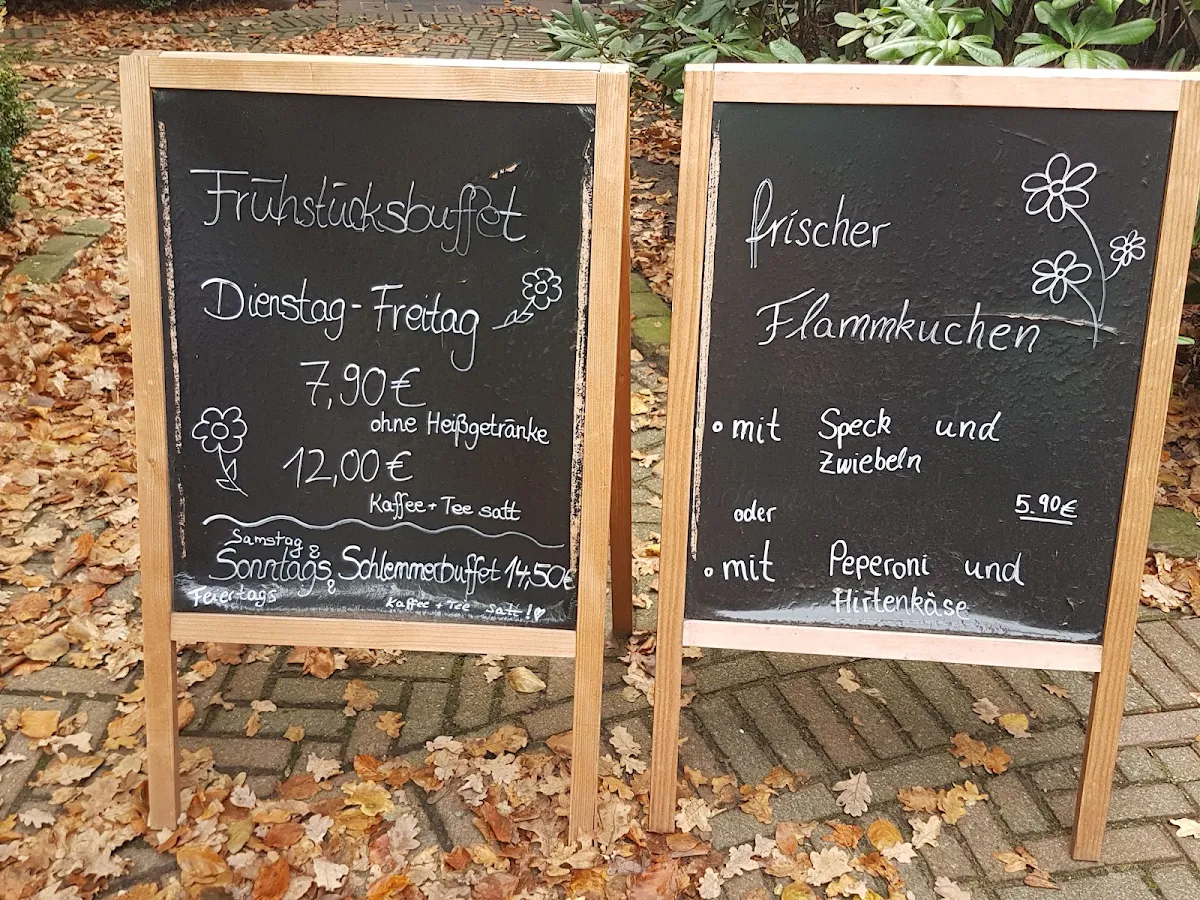 Frühstücksbuffet
Dienstag - Freitag
7,90 €
ohne Heißgetränke
12,00 €
Kaffee + Tee satt
Samstag &
Sonntags Schlemmerbuffet 14,50€
& Feiertags
Kaffee + Tee satt!
frischer
Flammkuchen
mit Speck und
Zwiebeln
oder
5.90€
mit Peperoni und
Hirtenkäse